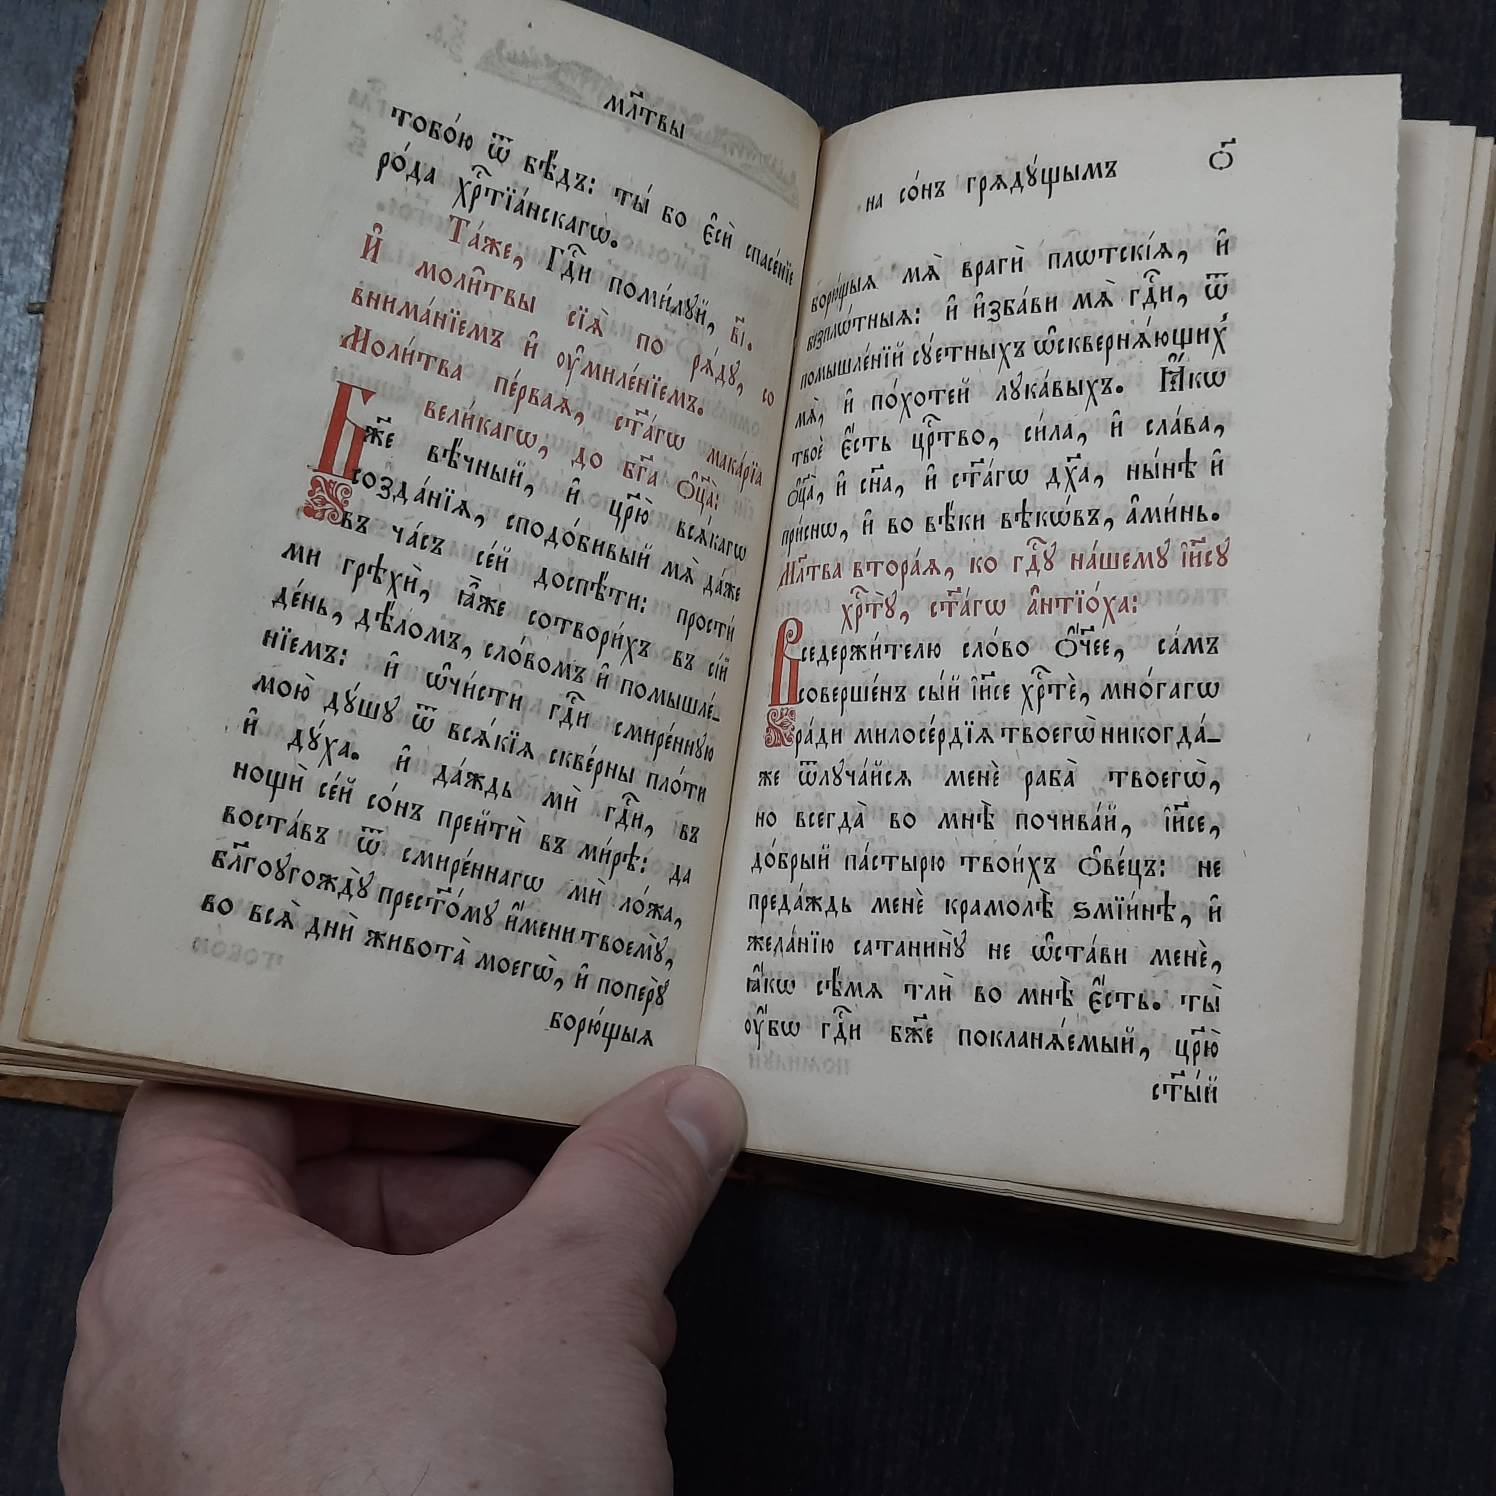 мл҃твы
тобо́ю ѿ бѣ́дъ: ты́ бо є҆сѝ спасе́нїе
ро́да хрⷭ҇тїа́нскагѡ.
Та́же, Гдⷭ҇и поми́лꙋй, в҃і.
И҆ моли̑твы сїѧ̀ по рѧ́дꙋ, со
внима́нїемъ и҆ оу҆миле́нїемъ.
Моли́тва пе́рваѧ, ст҃а́гѡ мака́рїа
вели́кагѡ, до бг҃а ѻ҆ц҃а̀:
Бж҃е вѣ́чный, и҆ цр҃ю̀ всѧ́кагѡ
созда́нїѧ, сподо́бивый мѧ̀ да́же
въ ча́съ се́й доспѣ́ти: прости́
ми грѣхѝ, ꙗ҆̀же сотвори́хъ въ сі́й
де́нь, дѣ́ломъ, сло́вомъ и҆ помышле́-
нїемъ: и҆ ѡ҆чи́сти гдⷭ҇и смире́ннꙋю
мою̀ дꙋ́шꙋ ѿ всѧ́кїѧ скве́рны пло́ти
и҆ дꙋ́ха. и҆ да́ждь мѝ гдⷭ҇и, въ
нощѝ се́й со́нъ прейтѝ въ ми́рѣ: да
воста́въ ѿ смире́ннагѡ мѝ ло́жа,
бл҃гоꙋгождꙋ̀ прест҃о́мꙋ и҆́мени твоемꙋ̀,
во всѧ̀ дни̑ живота̀ моегѡ̀, и҆ поперꙋ̀
борю́щыѧ
на со́нъ грѧдꙋ́щымъ
о҃
борю́щыѧ мѧ̀ врагѝ плѡтскі́ѧ, и҆
безплѡ́тныѧ: и҆ и҆зба́ви мѧ̀ гдⷭ҇и, ѿ
помышле́нїй сꙋ́етныхъ ѡ҆скверна́ющихъ
мѧ̀, и҆ по́хотей лꙋка́выхъ. Ꙗ҆́кѡ
твоѐ є҆́сть црⷭ҇тво, си́ла, и҆ сла́ва,
ѻ҆ц҃а̀, и҆ сн҃а, и҆ ст҃а́гѡ дх҃а, ны́нѣ и҆
при́снѡ, и҆ во вѣ́ки вѣкѡ́въ, а҆ми́нь.
Мл҃тва втора́ѧ, ко гдⷭ҇ꙋ на́шемꙋ і҆и҃сꙋ
хрⷭ҇тꙋ̀, ст҃а́гѡ а҆нтїо́ха:
Вседержи́телю сло́во ѻ҆́ч҃ее, са́мъ
соверше́нъ сы́й і҆и҃се хрⷭ҇тѐ, мно́гагѡ
ра́ди милосе́рдїѧ твоегѡ̀ никогда́-
же ѿлꙋча́йсѧ менѐ раба̀ твоегѡ̀,
но всегда̀ во мнѣ̀ почива́й, і҆и҃се,
до́брый па́стырю твои́хъ ѻ҆ве́цъ: не
преда́ждь менѐ крамолѣ̀ ѕмїи́нѣ, и҆
жела́нїю сатанинꙋ̀ не ѡ҆ста́ви менѐ,
ꙗ҆́кѡ сѣ́мѧ тлѝ во мнѣ̀ є҆́сть. ты̀
оу҆́бѡ гдⷭ҇и бж҃е покланѧ́емый, цр҃ю̀
ст҃ы́й